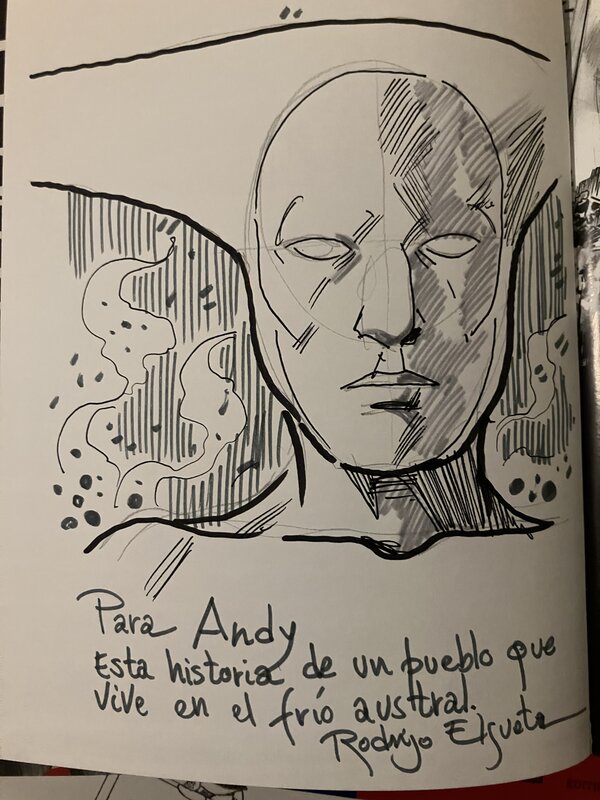 Para Andy
Esta historia de un pueblo que
vive en el frío austral.
Rodrigo Elgueta